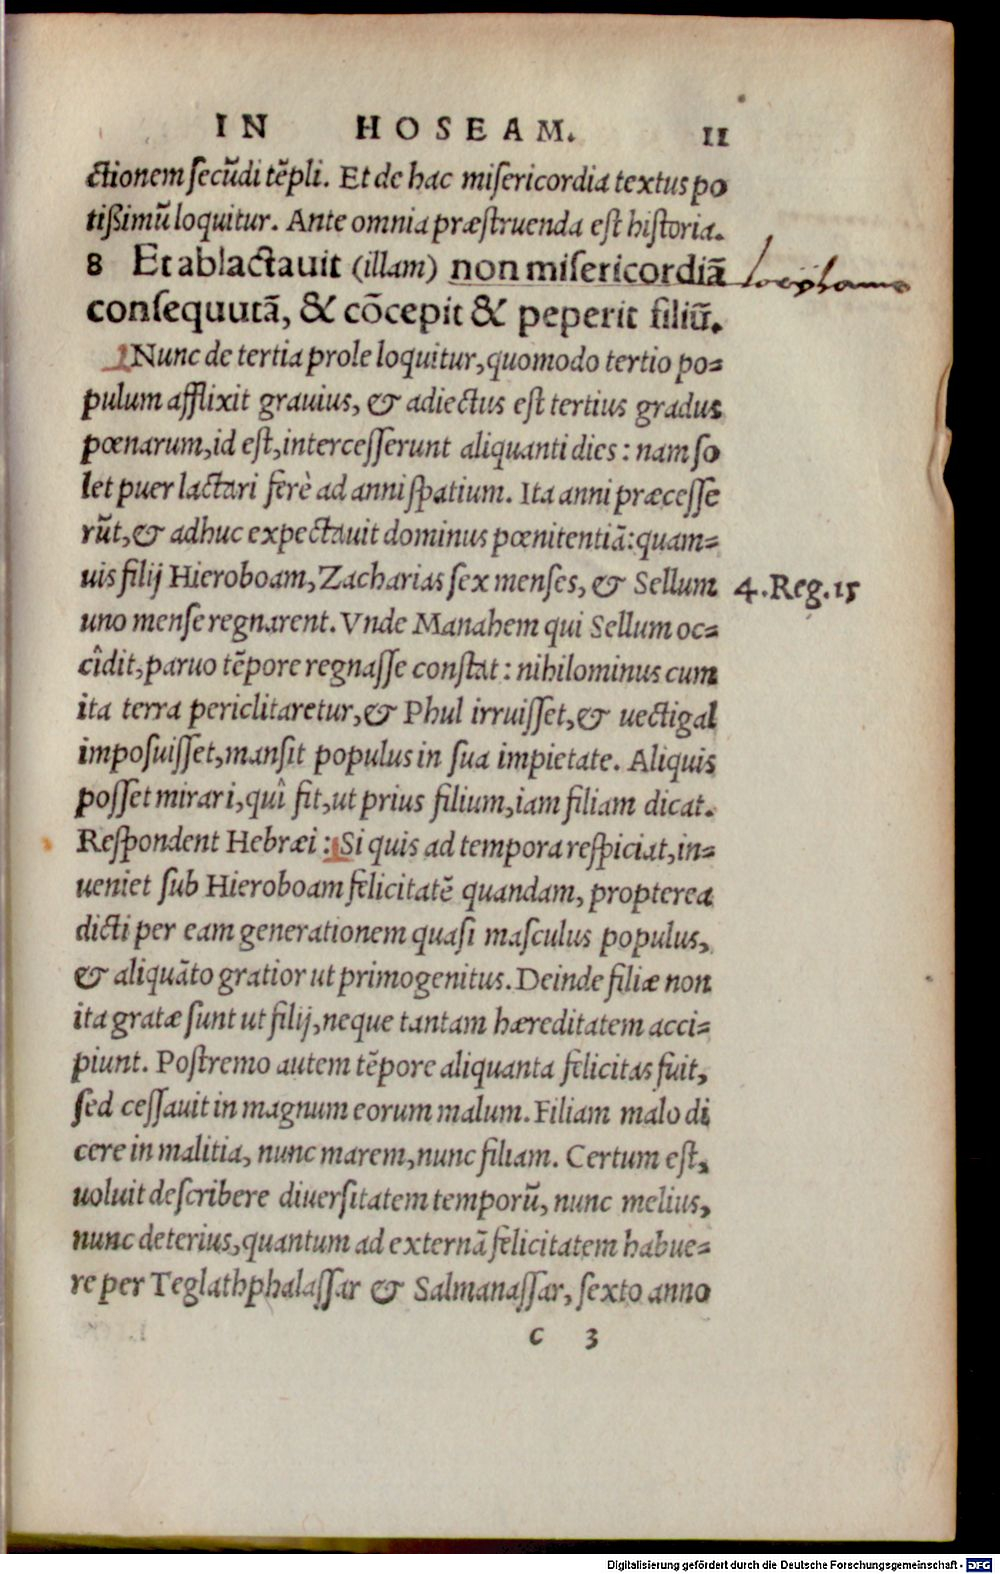 IN HOSEAM. 11
ctionem secũdi tẽpli. Et de hac misericordia textus po
tißimũ loquitur. Ante omnia præstruenda est historia.
8 Et ablactauit (illam) non misericordiã
consequutã, & cõcepit & peperit filiũ.
Nunc de tertia prole loquitur, quomodo tertio po-
pulum afflixit grauius, & adiectus est tertius gradus
pœnarum, id est, intercesserunt aliquanti dies: nam so
let puer lactari ferè ad anni spatium. Ita anni præcesse
rũt, & adhuc expectauit dominus pœnitentiã: quam-
uis filij Hieroboam, Zacharias sex menses, & Sellum
4. Reg. 15
uno mense regnarent. Vnde Manahem qui Sellum oc-
cîdit, paruo tẽpore regnasse constat: nihilominus cum
ita terra periclitaretur, & Phul irruisset, & uectigal
imposuisset, mansit populus in sua impietate. Aliquis
posset mirari, quî fit, ut prius filium, iam filiam dicat.
Respondent Hebræi: Si quis ad tempora respiciat, in-
ueniet sub Hieroboam felicitatẽ quandam, propterea
dicti per eam generationem quasi masculus populus,
& aliquãto gratior ut primogenitus. Deinde filiæ non
ita gratæ sunt ut filij, neque tantam hæreditatem acci-
piunt. Postremo autem tẽpore aliquanta felicitas fuit,
sed cessauit in magnum eorum malum. Filiam malo di
cere in malitia, nunc marem, nunc filiam. Certum est,
uoluit describere diuersitatem temporũ, nunc melius,
nunc deterius, quantum ad externã felicitatem habue-
re per Teglathphalassar & Salmanassar, sexto anno
c 3
Digitalisierung gefördert durch die Deutsche Forschungsgemeinschaft - DFG